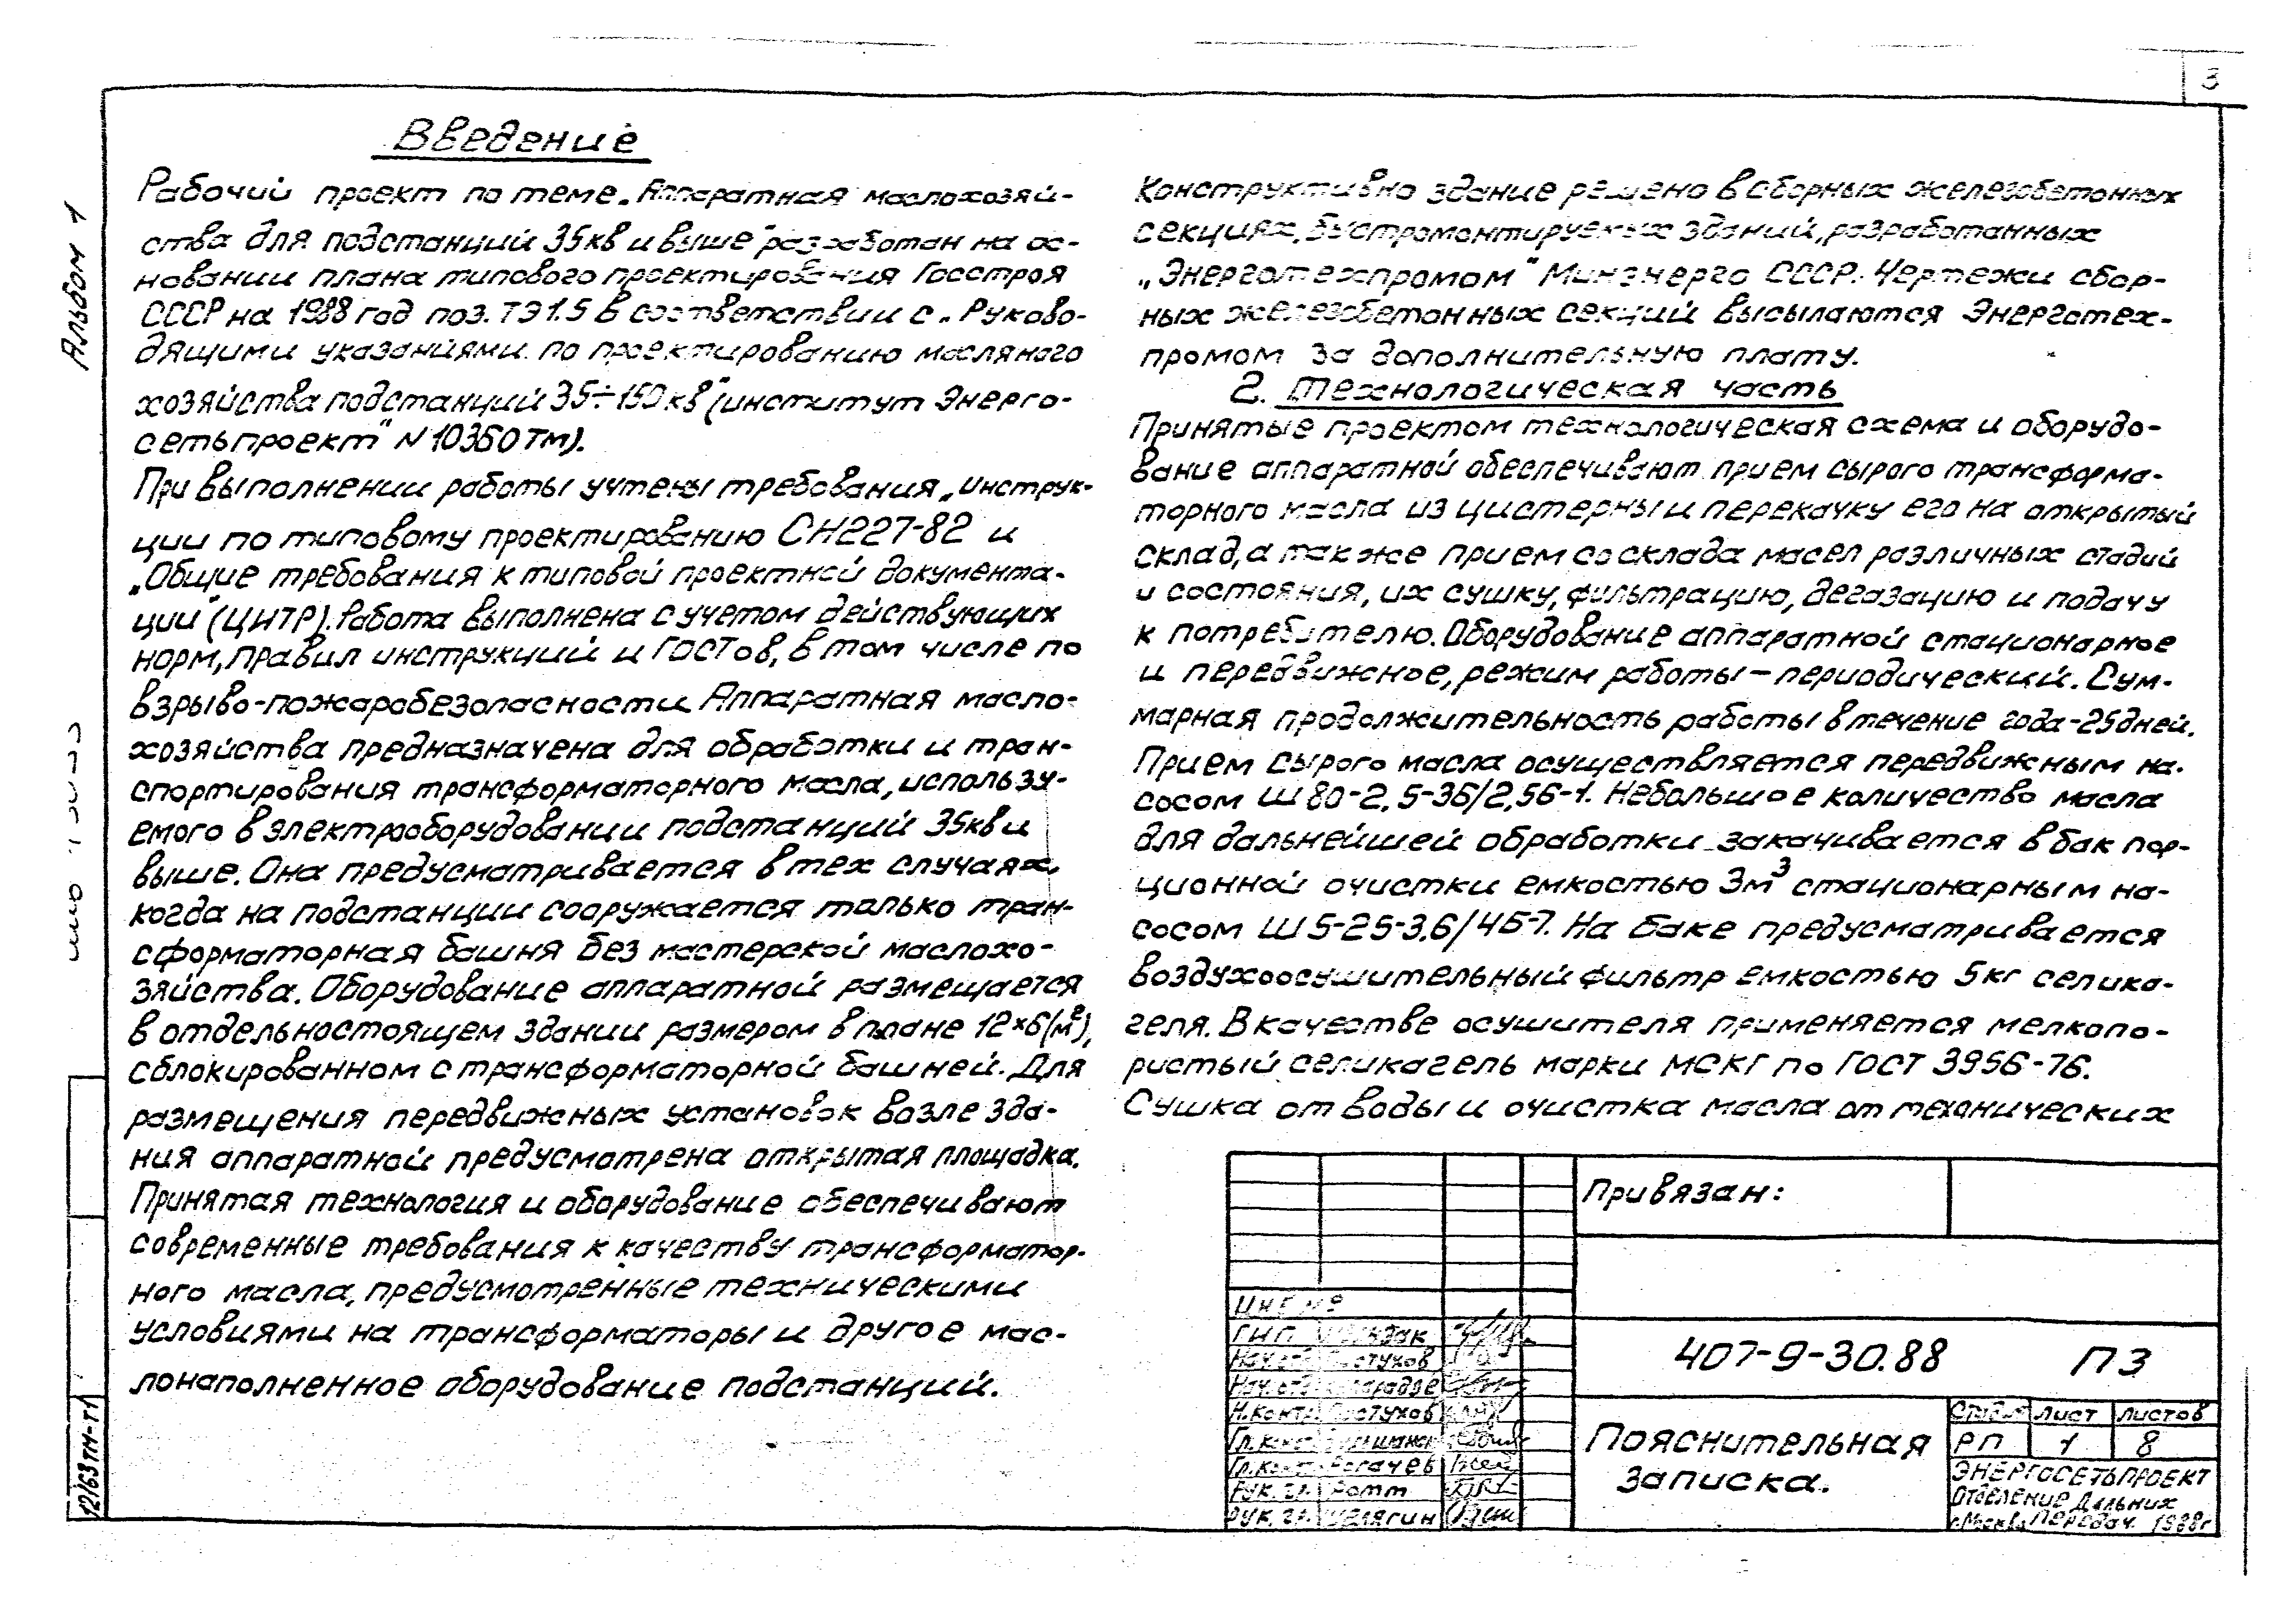 3
Альбом 1
Введение
Рабочий проект по теме „Аппаратная маслохозяй-
ства для подстанций 35кв и выше" разработан на ос-
новании плана типового проектирования Госстроя
СССР на 1988 год поз. ТЭ1.5 в соответствии с „Руково-
дящими указаниями по проектированию масляного
хозяйства подстанций 35÷150кв" (институт Энерго-
сетьпроект" N 10350тм).
При выполнении работы учтены требования „Инструк-
ции по типовому проектированию СН227-82 и
„Общие требования к типовой проектной документа-
ции" (ЦИТР). Работа выполнена с учетом действующих
норм, правил инструкций и ГОСТов, в том числе по
взрыво-пожаробезопасности. Аппаратная масло-
хозяйства предназначена для обработки и тран-
спортирования трансформаторного масла, использу-
емого в электрооборудовании подстанций 35кв и
выше. Она предусматривается в тех случаях,
когда на подстанции сооружается только тран-
сформаторная башня без мастерской маслохо-
зяйства. Оборудование аппаратной размещается
в отдельностоящем здании размером в плане 12×6(м²),
сблокированном с трансформаторной башней. Для
размещения передвижных установок возле зда-
ния аппаратной предусмотрена открытая площадка.
Принятая технология и оборудование обеспечивают
современные требования к качеству трансформатор-
ного масла, предусмотренные техническими
условиями на трансформаторы и другое мас-
лонаполненное оборудование подстанций.
Конструктивно здание решено в сборных железобетонных
секциях, быстромонтируемых зданий, разработанных
„Энерготехпромом" Минэнерго СССР. Чертежи сбор-
ных железобетонных секций высылаются Энерготех-
промом за дополнительную плату.
2. Технологическая часть
Принятые проектом технологическая схема и оборудо-
вание аппаратной обеспечивают прием сырого трансформа-
торного масла из цистерны и перекачку его на открытый
склад, а также прием со склада масел различных стадий
и состояния, их сушку, фильтрацию, дегазацию и подачу
к потребителю. Оборудование аппаратной стационарное
и передвижное, режим работы – периодический. Сум-
марная продолжительность работы в течение года-25дней.
Прием сырого масла осуществляется передвижным на-
сосом Ш 80-2,5-36/2,5б-1. Небольшое количество масла
для дальнейшей обработки закачивается в бак пор-
ционной очистки емкостью 3м³ стационарным на-
сосом Ш 5-25-3,6/4Б-7. На баке предусматривается
воздухоосушительный фильтр емкостью 5кг селика-
геля. В качестве осушителя применяется мелкопо-
ристый селикагель марки МСКГ по ГОСТ 3956-76.
Сушка от воды и очистка масла от механических
Привязан:
Инв №
ГИП
Нач. отд. Пастухов
Нач. отд.
Н. контр. Пастухов
Гл. конс.
Гл. конт. Рогачев
Рук. гр. Ратт
Рук. гр.
407-9-30.88 ПЗ
Пояснительная
записка.
Стадия Лист Листов
РП 1 8
ЭНЕРГОСЕТЬПРОЕКТ
Отделение Дальних
г. Москва Передач. 1988г
12163ТМ-Т1